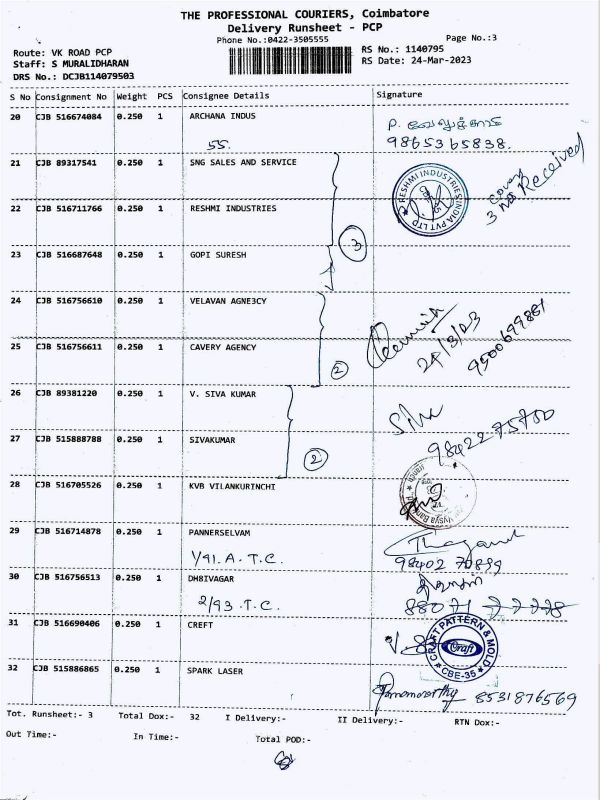 THE PROFESSIONAL COURIERS, Coimbatore
Delivery Runsheet - PCP
Phone No.:0422-3505555
Page No.:3
Route: VK ROAD PCP
RS No.: 1140795
Staff: S MURALIDHARAN
RS Date: 24-Mar-2023
DRS No.: DCJB114079503
S No Consignment No Weight PCS Consignee Details Signature
20 CJB 516674084 0.250 1 ARCHANA INDUS
P. வேலுச்சாமி
55.
9865365838.
21 CJB 89317541 0.250 1 SNG SALES AND SERVICE
RESHMI INDUSTRIES INDIA PVT LTD
3 cover not Received
22 CJB 516711766 0.250 1 RESHMI INDUSTRIES
3
23 CJB 516687648 0.250 1 GOPI SURESH
24 CJB 516756610 0.250 1 VELAVAN AGNE3CY
24/3/23
9500699881
25 CJB 516756611 0.250 1 CAVERY AGENCY
2
26 CJB 89381220 0.250 1 V. SIVA KUMAR
Siva
9842275700
27 CJB 515888788 0.250 1 SIVAKUMAR
2
28 CJB 516705526 0.250 1 KVB VILANKURINCHI
Vysya Bank
29 CJB 516714878 0.250 1 PANNERSELVAM
1/91. A. T.C.
98402 70899
30 CJB 516756513 0.250 1 DH8IVAGAR
2/93 .T.C.
88071 77778
31 CJB 516690406 0.250 1 CREFT
CRAFT PATTERN & MOLD
Craft
CBE-35
32 CJB 515886865 0.250 1 SPARK LASER
8531876569
Tot. Runsheet:- 3 Total Dox:- 32 I Delivery:- II Delivery:- RTN Dox:-
Out Time:- In Time:- Total POD:-